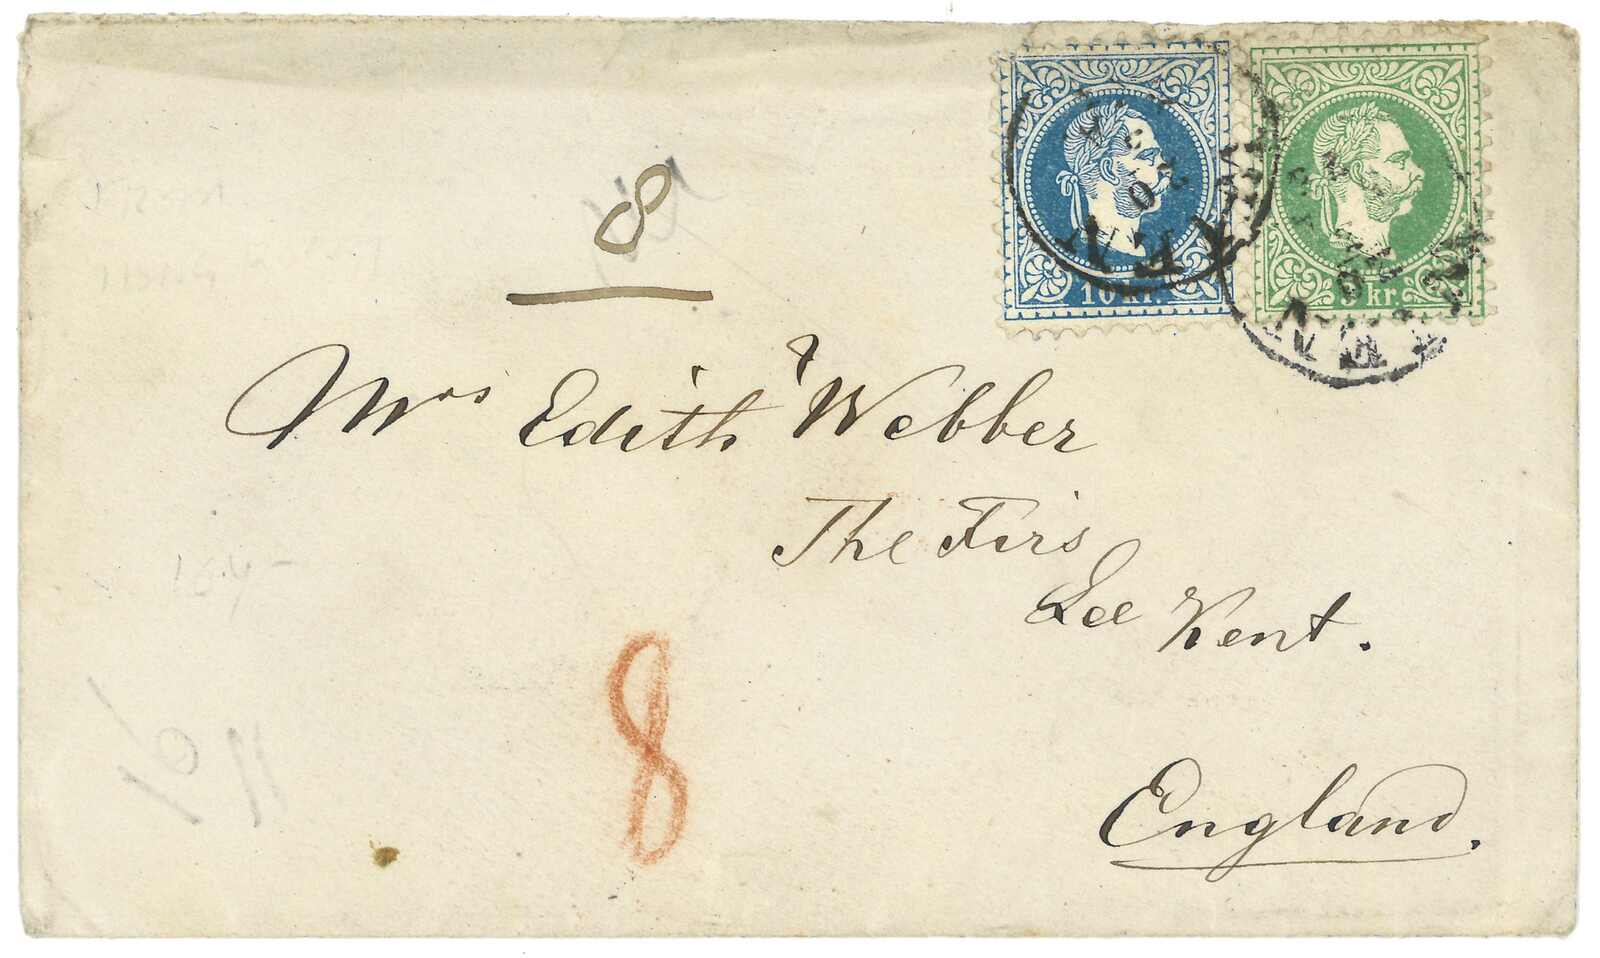 10 kr.
3 kr.
8
Mrs Edith Webber
The Firs
Lee Kent.
8
England.